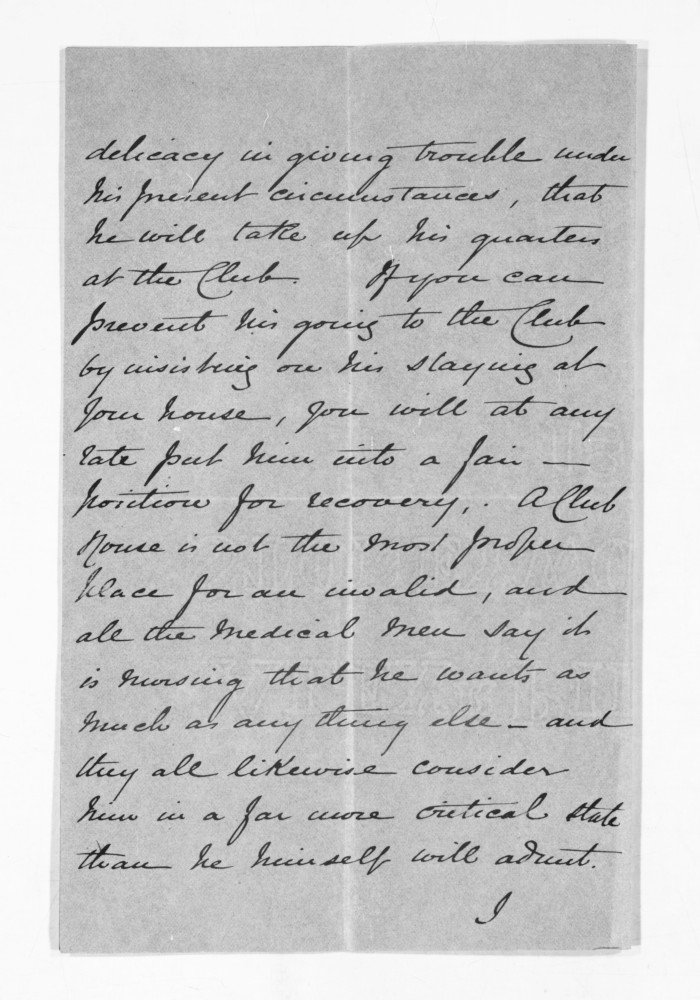 delicacy in giving trouble under
his present circumstances, that
he will take up his quarters
at the Club. If you can
prevent his going to the Club
by insisting on his staying at
your house, you will at any
rate put him into a fair —
position for recovery,. A Club
House is not the most proper
place for an invalid, and
all the medical men say it
is nursing that he wants as
much as any thing else – and
they all likewise consider
him in a far more critical state
than he himself will admit.
I